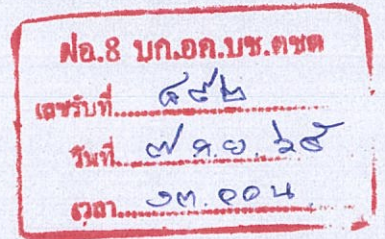 ฝอ.8 บก.อก.บช.ตชด
เลขรับที่
วันที่ ๗ ก.ย. ๖๕
เวลา ๑๓.๐๐ น